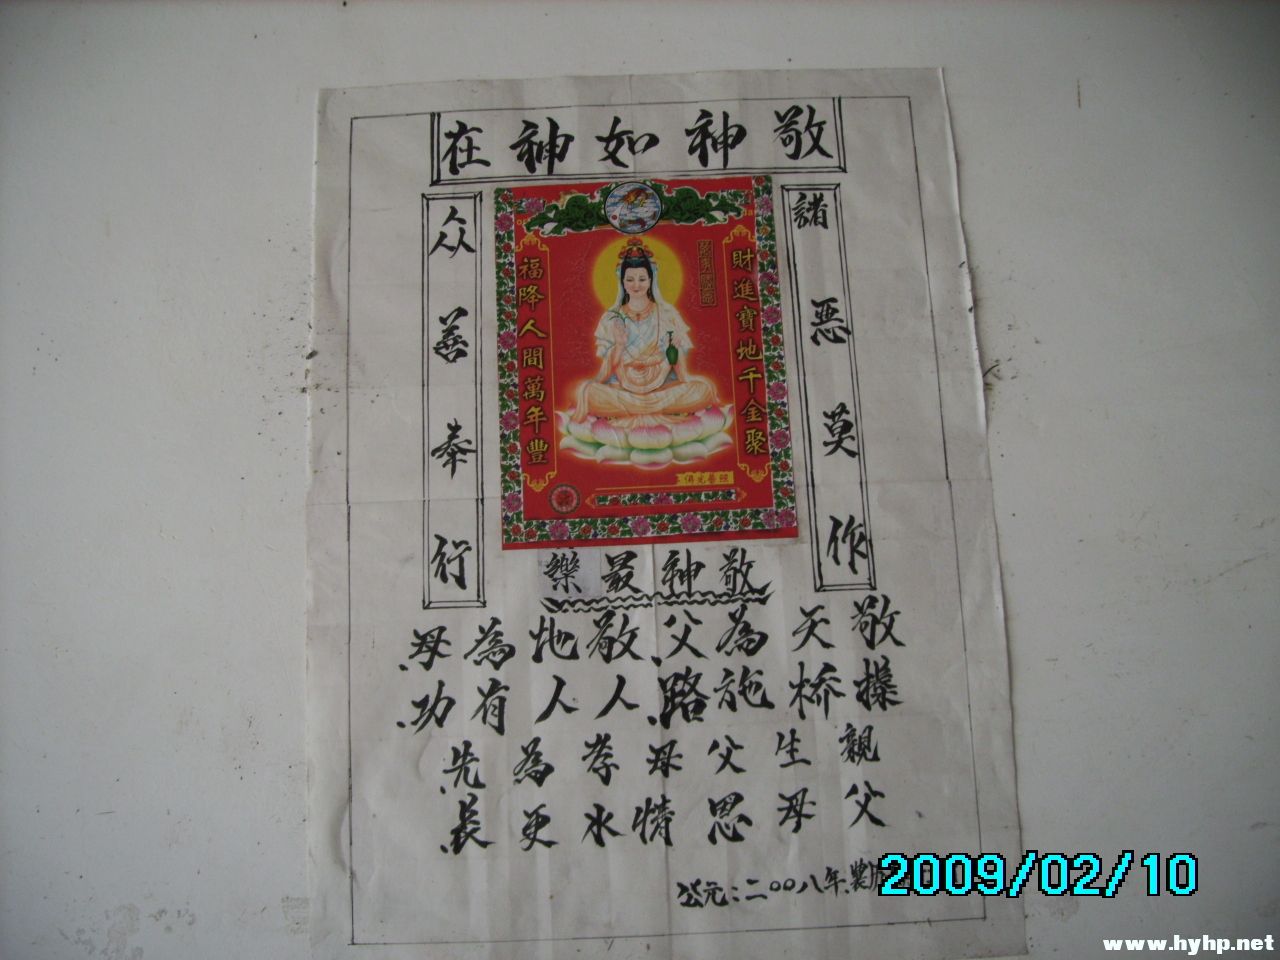 敬神如神在
諸惡莫作
众善奉行
財進寶地千金聚
福降人間萬年豐
佛光普照
敬神最樂
敬天為父敬地為母
樣桥施路人人有功
親生父母孝為先
父母恩情水更長
公元:二00八年農
2009/02/10
www.hyhp.net